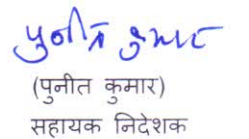 पुनीत कुमार
(पुनीत कुमार)
सहायक निदेशक